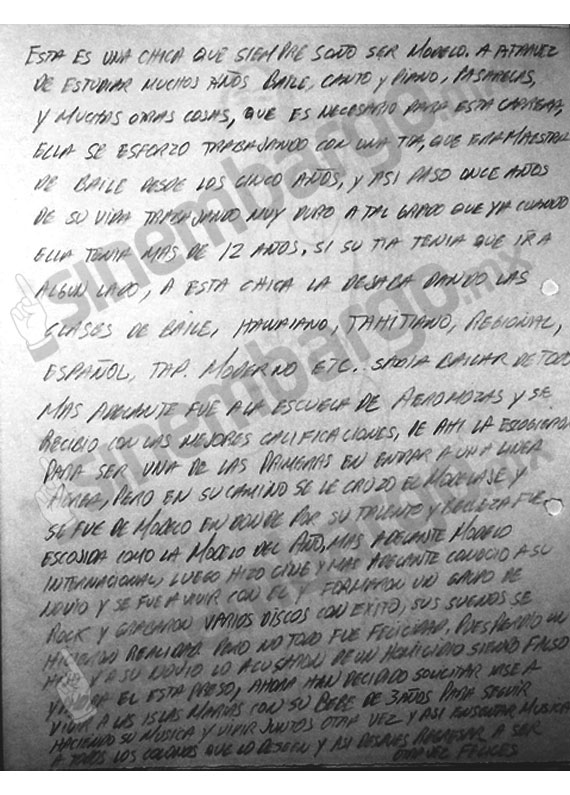 ESTA ES UNA CHICA QUE SIEMPRE SOÑO SER MODELO. A
DE ESTUDIAR MUCHOS AÑOS BAILE, CANTO Y PIANO, PASARELAS,
Y MUCHAS OTRAS COSAS, QUE ES NECESARIO PARA ESTA CARRERA,
ELLA SE ESFORZO TRABAJANDO CON UNA TIA, QUE ERA MAESTRA
DE BAILE DESDE LOS CINCO AÑOS, Y ASI PASO ONCE AÑOS
DE SU VIDA TRABAJANDO MUY DURO A TAL GRADO QUE YA CUANDO
ELLA TENIA MAS DE 12 AÑOS. SI SU TIA TENIA QUE IR A
ALGUN LADO, A ESTA CHICA LA DEJABA DANDO LAS
CLASES DE BAILE, HAWAIANO, TAHITIANO, REGIONAL,
ESPAÑOL, TAP. MODERNO ETC.. SABIA BAILAR DE TODO
MAS ADELANTE FUE A LA ESCUELA DE AEROMOZAS Y SE
RECIBIO CON LAS MEJORES CALIFICACIONES, DE AHI LA ESCOGIERON
PARA SER UNA DE LAS PRIMERAS EN ENTRAR A UNA LINEA
AEREA, PERO EN SU CAMINO SE LE CRUZO EL MODELAJE Y
SE FUE DE MODELO EN DONDE POR SU TALENTO Y BELLEZA FUE
ESCOJIDA COMO LA MODELO DEL AÑO, MAS ADELANTE MODELO
INTERNACIONAL, LUEGO HIZO CINE Y MAS ADELANTE CONOCIO A SU
NOVIO Y SE FUE A VIVIR CON EL Y FORMARON UN GRUPO DE
ROCK Y GRABARON VARIOS DISCOS CON EXITO, SUS SUEÑOS SE
HICIERON REALIDAD. PERO NO TODO FUE FELICIDAD, PUES PERDIO UN
HIJO Y A SU NOVIO LO ACUSARON DE UN HOMICIDIO SIENDO FALSO
Y AHORA EL ESTA PRESO, AHORA HAN DECIDIDO SOLICITAR IRSE A
VIVIR A LAS ISLAS MARIAS CON SU BEBE DE 3 AÑOS PARA SEGUIR
HACIENDO SU MUSICA Y VIVIR JUNTOS OTRA VEZ Y ASI ENSEÑAR MUSICA
A TODOS LOS COLONOS QUE LO DESEEN Y ASI DESPUES REGRESAR A SER
OTRA VEZ FELICES
sinembargo.mx
sinembargo.mx
sinembargo.mx